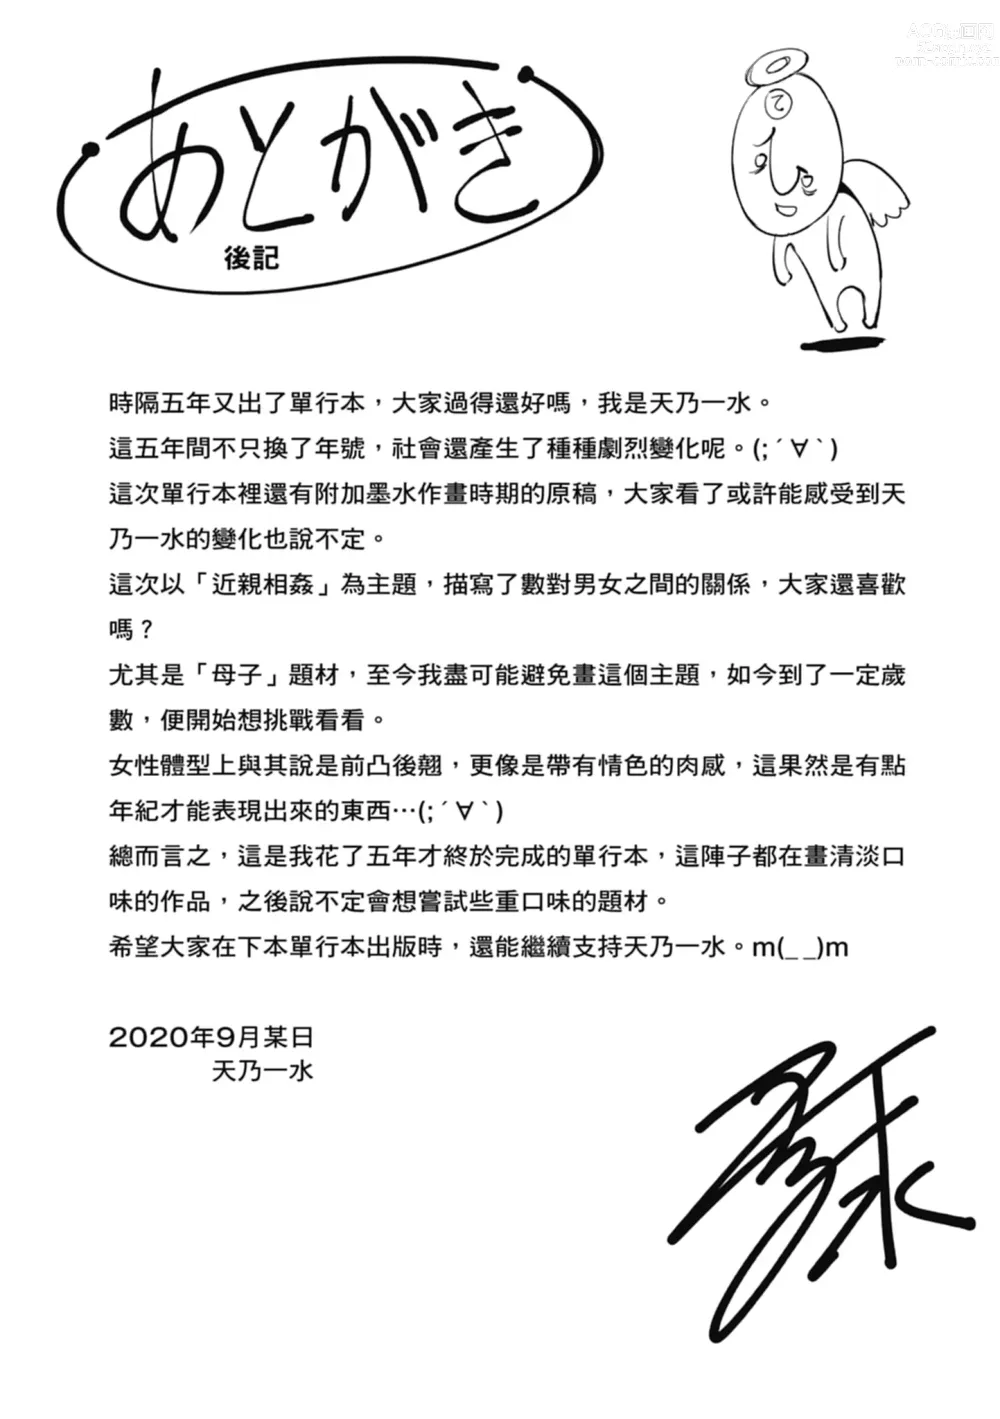 あとがき
後記
時隔五年又出了單行本，大家過得還好嗎，我是天乃一水。
這五年間不只換了年號，社會還產生了種種劇烈變化呢。(;´∀`)
這次單行本裡還有附加墨水作畫時期的原稿，大家看了或許能感受到天
乃一水的變化也說不定。
這次以「近親相姦」為主題，描寫了數對男女之間的關係，大家還喜歡
嗎？
尤其是「母子」題材，至今我盡可能避免畫這個主題，如今到了一定歲
數，便開始想挑戰看看。
女性體型上與其說是前凸後翹，更像是帶有情色的肉感，這果然是有點
年紀才能表現出來的東西…(;´∀`)
總而言之，這是我花了五年才終於完成的單行本，這陣子都在畫清淡口
味的作品，之後說不定會想嘗試些重口味的題材。
希望大家在下本單行本出版時，還能繼續支持天乃一水。m(_ _)m
2020年9月某日
天乃一水